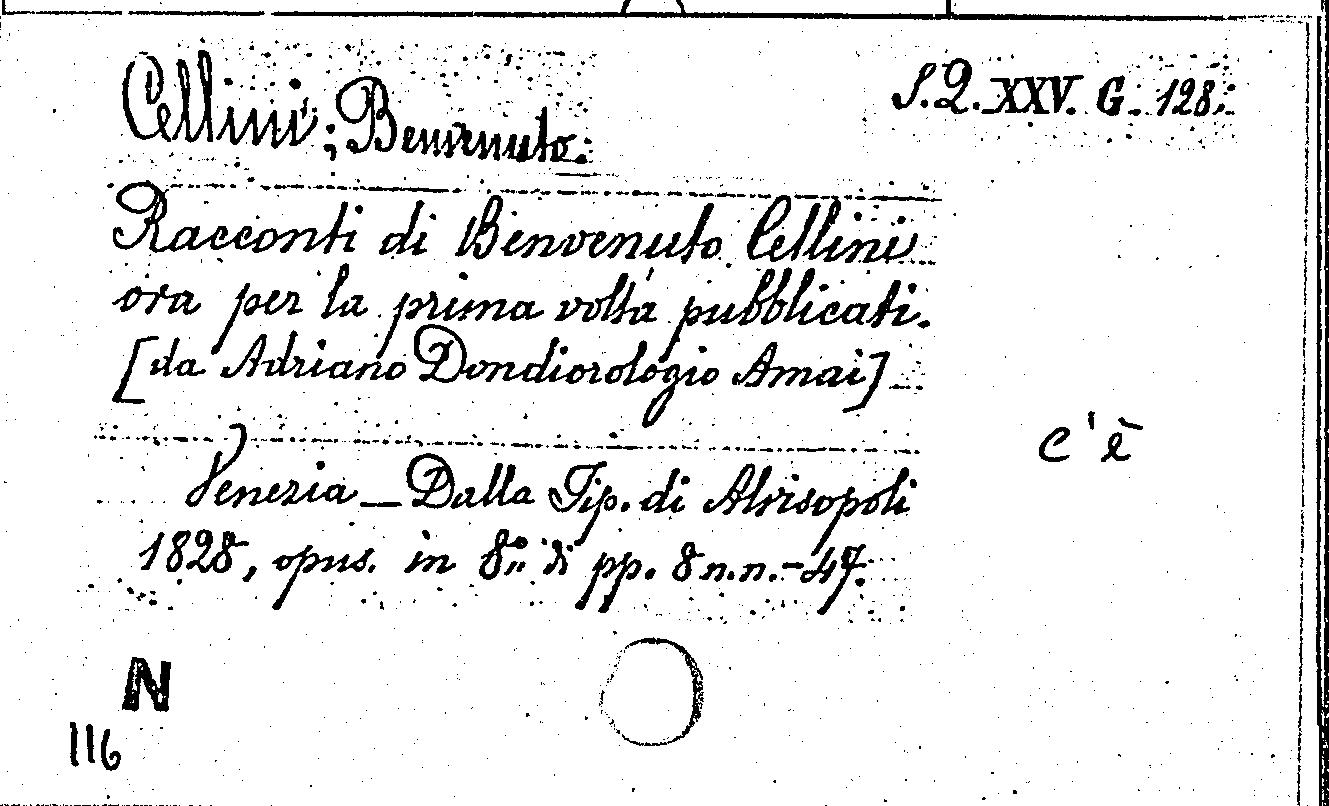 Cellini; Benvenuto.
S.Q. XXV. G. 128.
Racconti di Benvenuto Cellini
ora per la prima volta pubblicati.
[da Adriano Dondiorologio Amai]
c'è
Venezia - Dalla Tip. di Alvisopoli
1828, opus. in 8.º di pp. 8 n.n. - 47.
N
116